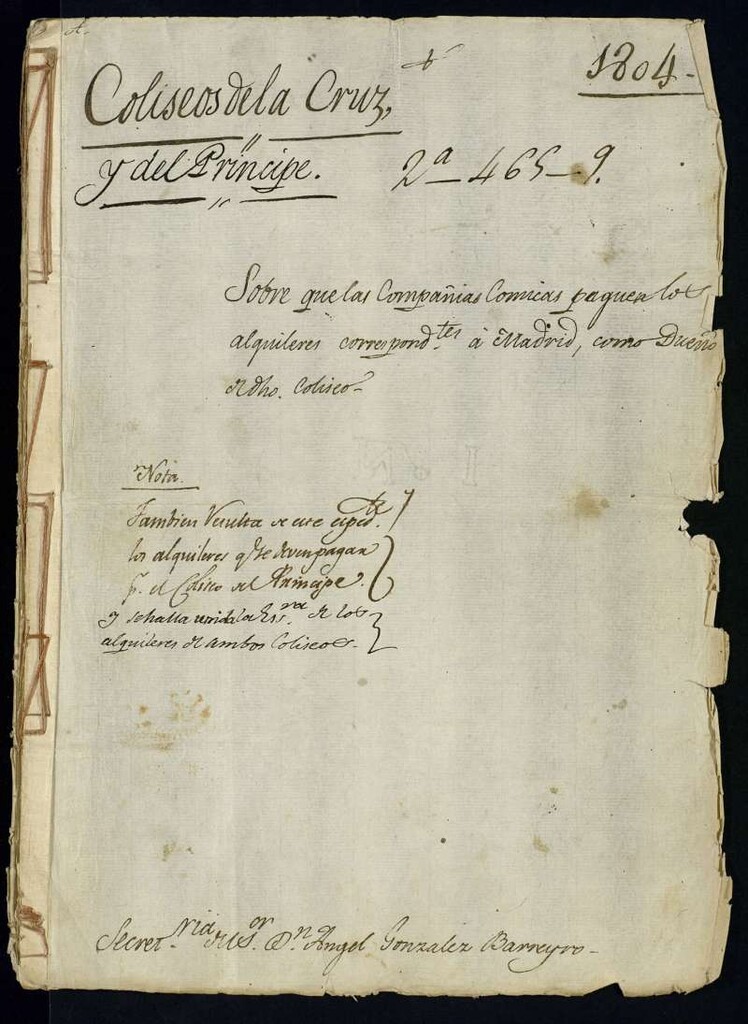 1804-
Coliseos de la Cruz,
y del Príncipe. 2ª-465-9.
Sobre que las Compañias Comicas paguen los
alquileres correspond.tes á Madrid, como Dueño
de dho. Coliseo-
Nota.
Tambien resulta de este exped.te
los alquileres q.e se deven pagar
p.r el Coliseo del Principe.
y se halla unida la Ess.ra de los
alquileres de ambos Coliseos-
Secret.ria del S.or D.n Angel Gonzalez Barreyro-